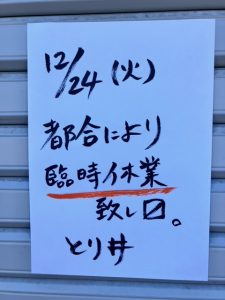 12/24(火)
都合により
臨時休業
致し〼。
とり井